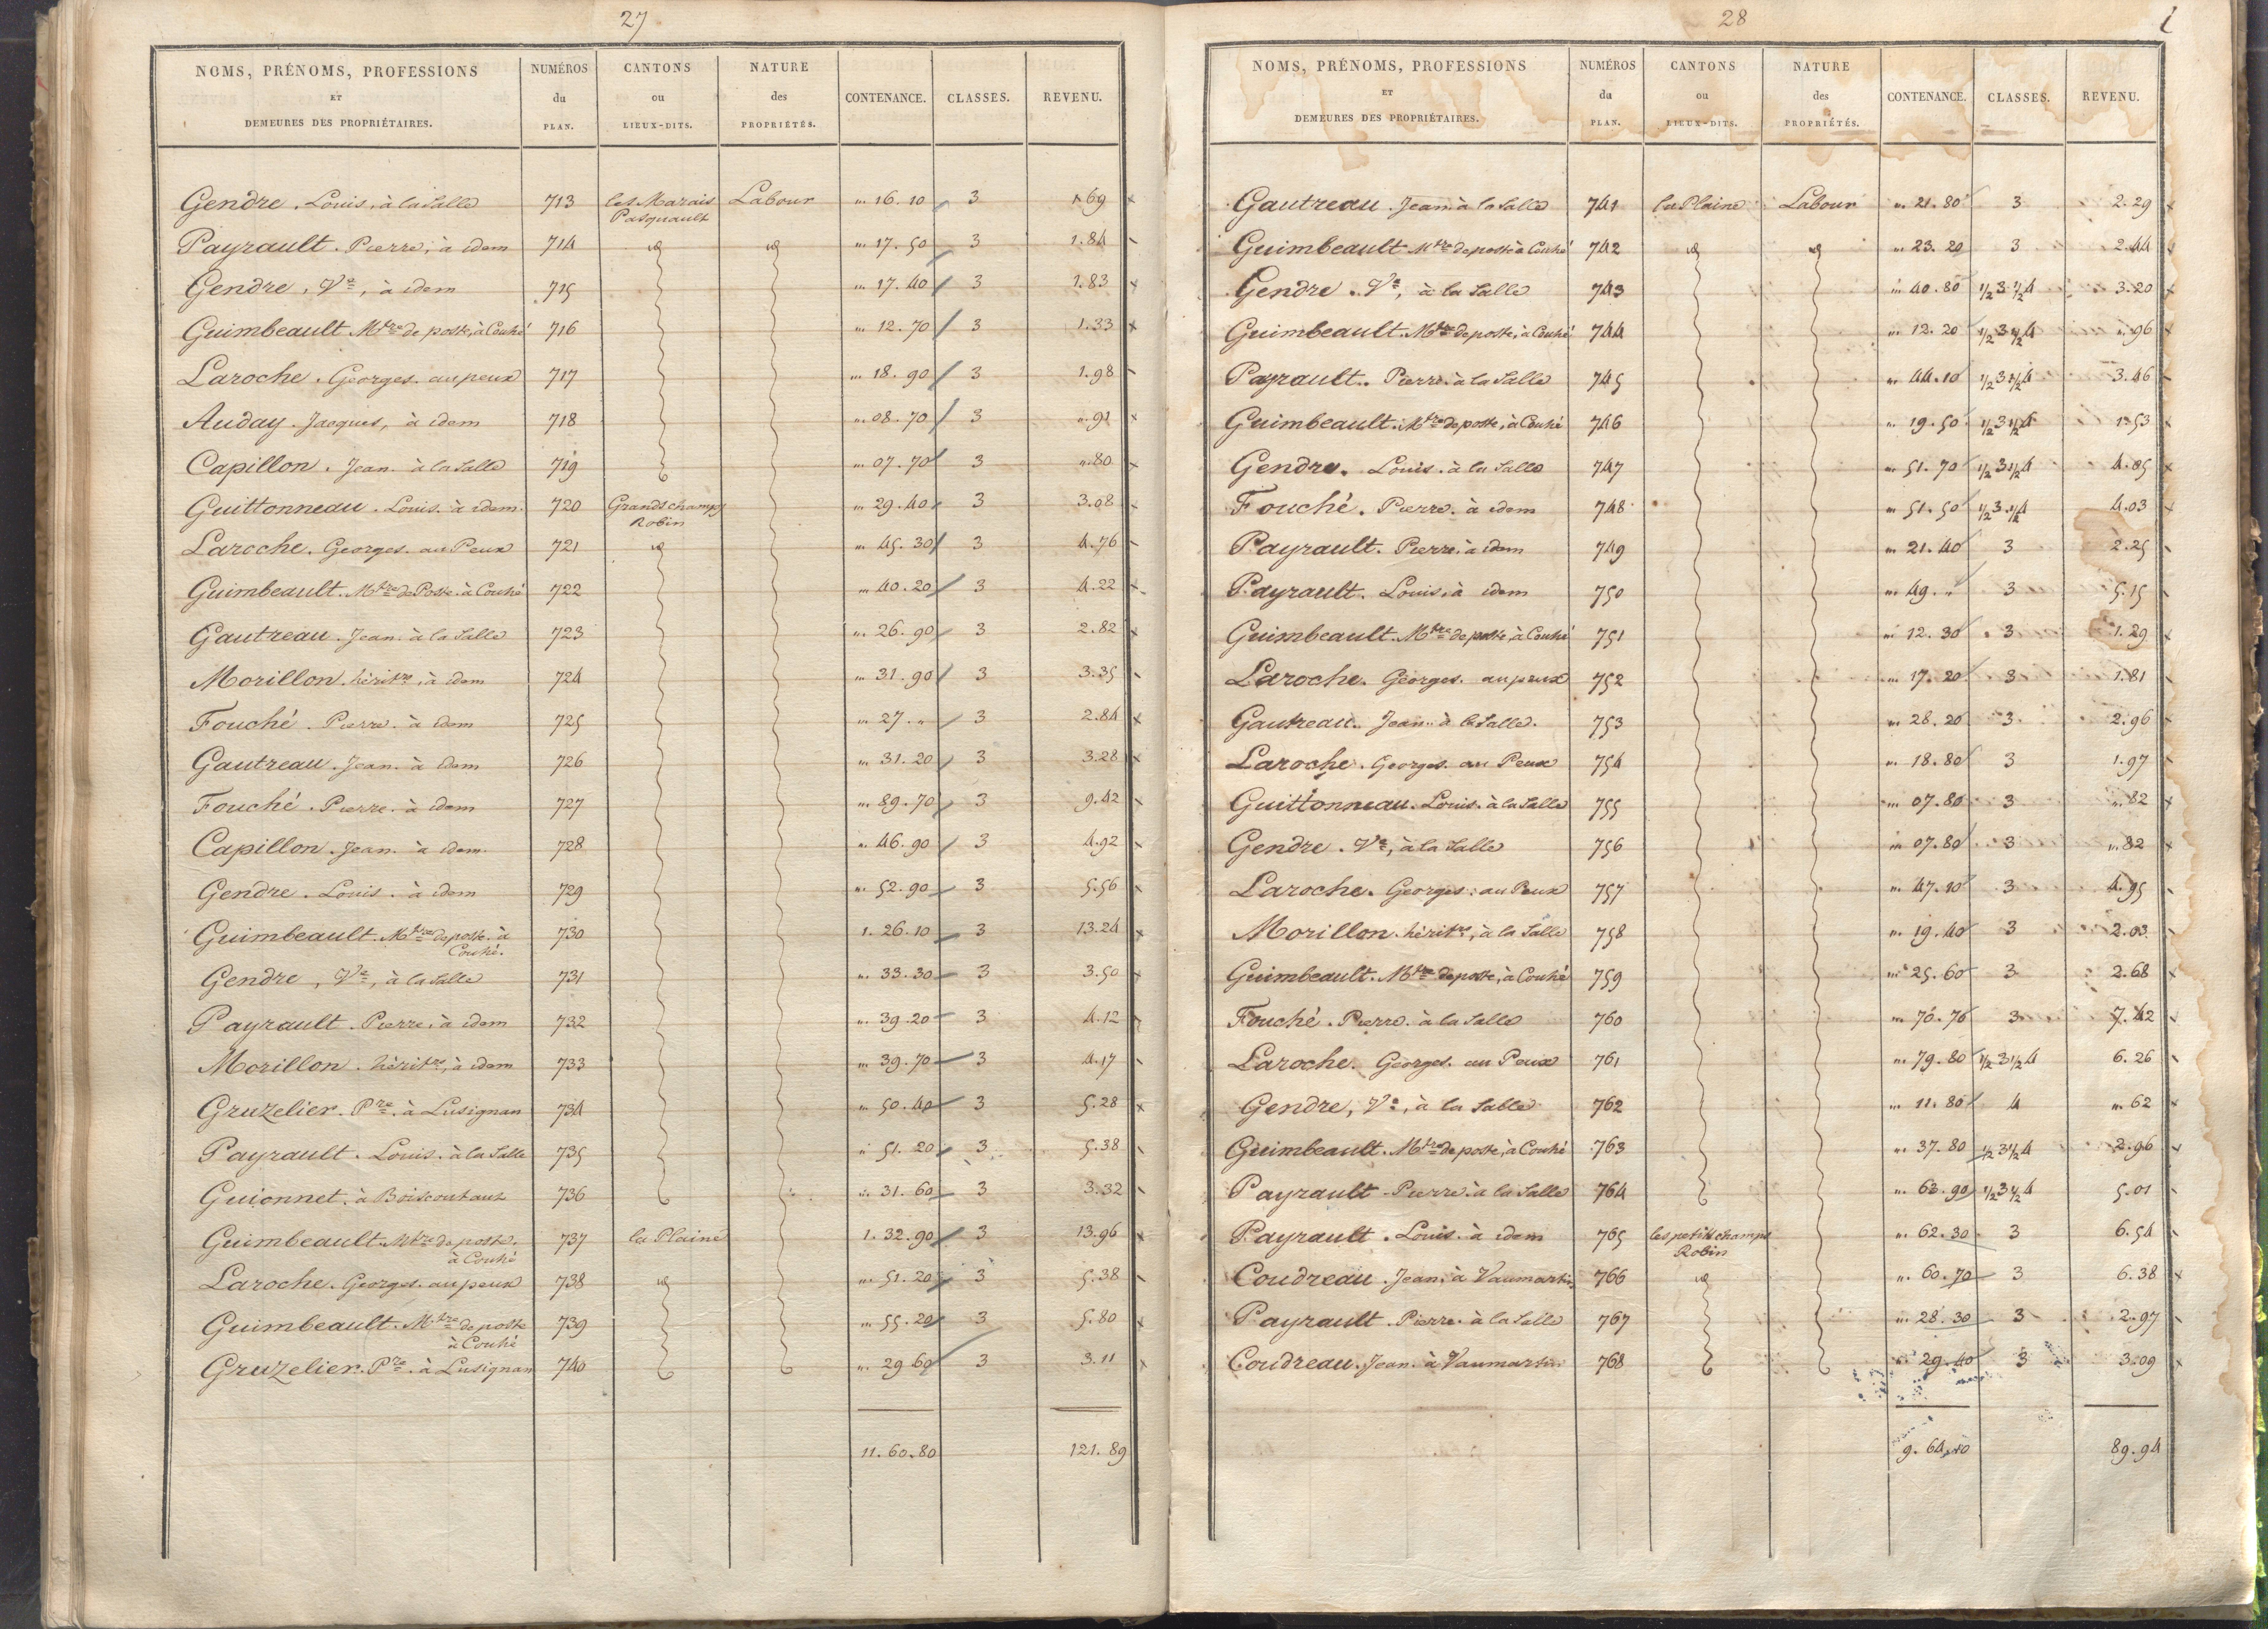 27
NOMS, PRÉNOMS, PROFESSIONS ET DEMEURES DES PROPRIÉTAIRES. NUMÉROS du PLAN. CANTONS ou LIEUX-DITS. NATURE des PROPRIÉTÉS. CONTENANCE. CLASSES. REVENU.
Gendre. Louis, à la Salle 713 les Marais Pasquault Labour " 16. 10 3 1 69
Payrault. Pierre, à idem 714 id id " 17. 50 3 1.84
Gendre, Ve, à idem 715 " 17. 40 3 1.83
Guimbeault. Mtre de poste, à Couhé 716 " 12. 70 3 1.33
Laroche. Georges. au peux 717 " 18. 90 3 1.98
Auday. Jacques, à idem 718 " 08. 70 3 ".91
Capillon. Jean. à la Salle 719 " 07. 70 3 ".80
Guittonneau. Louis. à idem. 720 Grands champs Robin " 29. 40 3 3.08
Laroche. Georges. au Peux 721 id " 45. 30 3 4.76
Guimbeault. Mtre de Poste. à Couhé 722 " 40. 20 3 4.22
Gautreau. Jean. à la Salle 723 " 26. 90 3 2.82
Morillon. héritrs, à idem 724 " 31. 90 3 3.35
Fouché. Pierre. à idem 725 " 27. " 3 2.84
Gautreau. Jean. à idem 726 " 31. 20 3 3.28
Fouché. Pierre. à idem 727 " 89. 70 3 9.42
Capillon. Jean. à idem. 728 " 46. 90 3 4.92
Gendre. Louis. à idem 729 " 52. 90 3 5.56
Guimbeault. Mtre de poste. à Couhé. 730 1. 26. 10 3 13.24
Gendre, Ve, à la Salle 731 " 33. 30 3 3.50
Payrault. Pierre, à idem 732 " 39. 20 3 4.12
Morillon. héritrs, à idem 733 " 39. 70 3 4.17
Gruzelier. Pre. à Lusignan 734 " 50. 40 3 5.28
Payrault. Louis. à la Salle 735 " 51. 20 3 5.38
Guionnet. à Boiscoutaut 736 " 31. 60 3 3.32
Guimbeault. Mtre de poste. à Couhé 737 la Plaine 1. 32. 90 3 13.96
Laroche. Georges. au peux 738 id " 51. 20 3 5.38
Guimbeault. Mtre de poste à Couhé 739 " 55. 20 3 5.80
Gruzelier. Pre. à Lusignan 740 " 29 60 3 3.11
11. 60. 80 121. 89
28
NOMS, PRÉNOMS, PROFESSIONS ET DEMEURES DES PROPRIÉTAIRES. NUMÉROS du PLAN. CANTONS ou LIEUX-DITS. NATURE des PROPRIÉTÉS. CONTENANCE. CLASSES. REVENU.
Gautreau. Jean. à la Salle 741 la Plaine Labour " 21. 80 3 2.29
Guimbeault Mtre de poste à Couhé 742 id id " 23. 20 3 2.44
Gendre. Ve, à la Salle 743 " 40. 80 1/2 3 1/2 4 3.20
Guimbeault. Mtre de poste, à Couhé 744 " 12. 20 1/2 3 1/2 4 ".96
Payrault. Pierre. à la Salle 745 " 44. 10 1/2 3 1/2 4 3.46
Guimbeault. Mtre de poste, à Couhé 746 " 19. 50 1/2 3 1/2 4 1.53
Gendre. Louis. à la Salle 747 " 51. 70 1/2 3 1/2 4 4.05
Fouché. Pierre. à idem 748 " 51. 50 1/2 3 1/2 4 4.03
Payrault. Pierre. à idem 749 " 21. 40 3 2.25
Payrault. Louis, à idem 750 " 49. " 3 5.15
Guimbeault. Mtre de poste, à Couhé 751 " 12. 30 3 1.29
Laroche. Georges. au peux 752 " 17. 20 3 1.81
Gautreau. Jean. à la Salle. 753 " 28. 20 3 2.96
Laroche. Georges. au Peux 754 " 18. 80 3 1.97
Guittonneau. Louis. à la Salle 755 " 07. 80 3 ".82
Gendre. Ve, à la Salle 756 " 07. 80 3 ".82
Laroche. Georges. au Peux 757 " 47. 10 3 4.95
Morillon. héritrs, à la Salle 758 " 19. 40 3 2.03
Guimbeault. Mtre de poste, à Couhé 759 " 25. 60 3 2.68
Fouché. Pierre. à la Salle 760 " 70. 70 3 7.42
Laroche. Georges. au Peux 761 " 79. 80 1/2 3 1/2 4 6.26
Gendre, Ve, à la Salle 762 " 11. 80 4 ".62
Guimbeault. Mtre de poste, à Couhé 763 " 37. 80 1/2 3 1/2 4 2.96
Payrault. Pierre. à la Salle 764 " 63. 90 1/2 3 1/2 4 5.01
Payrault. Louis. à idem 765 les petits champs Robin " 62. 30 3 6.54
Coudreau. Jean. à Vaumartin 766 id " 60. 70 3 6.38
Payrault. Pierre. à la Salle 767 " 28. 30 3 2.97
Coudreau. Jean. à Vaumartin 768 " 29. 40 3 3.09
9. 64. 40 89.94